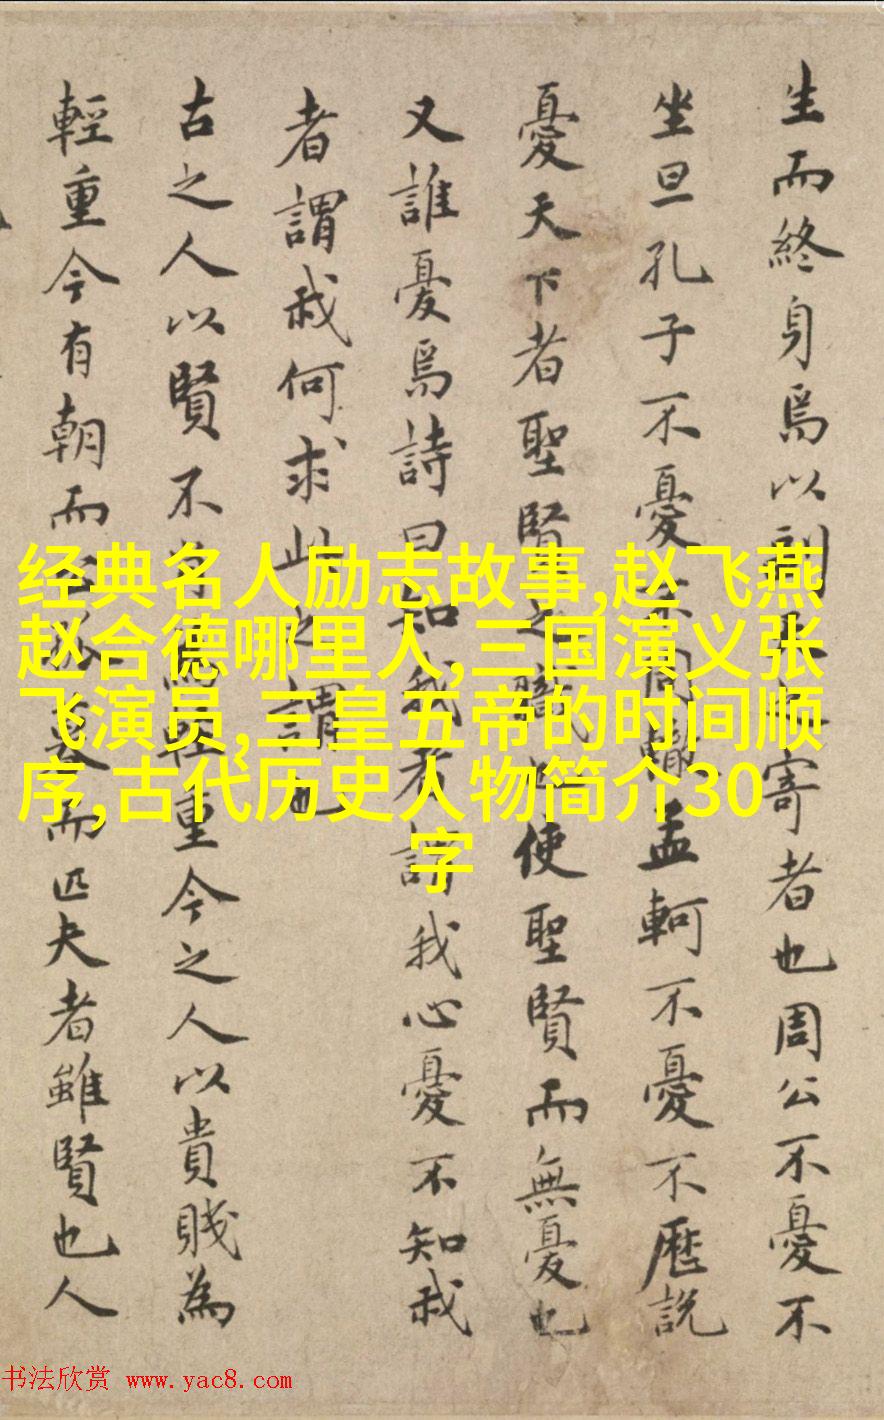 生而終身焉以寄者也周公不憂不
坐旦孔子不憂不周轍孟軻不憂不歷説
憂天下者聖賢之職也使聖賢而無憂也
又誰憂焉詩曰知我者謂我心憂不知我
者謂我何求此之謂也
古之人以賢不肖為輕重今之人以貴賤為
輕重今有朝而暮而匹夫者雖賢也人
经典名人励志故事,赵飞燕
赵合德哪里人,三国演义张
飞演员,三皇五帝的时间顺
序,古代历史人物简介30
字
书法欣赏 www.yac8.com